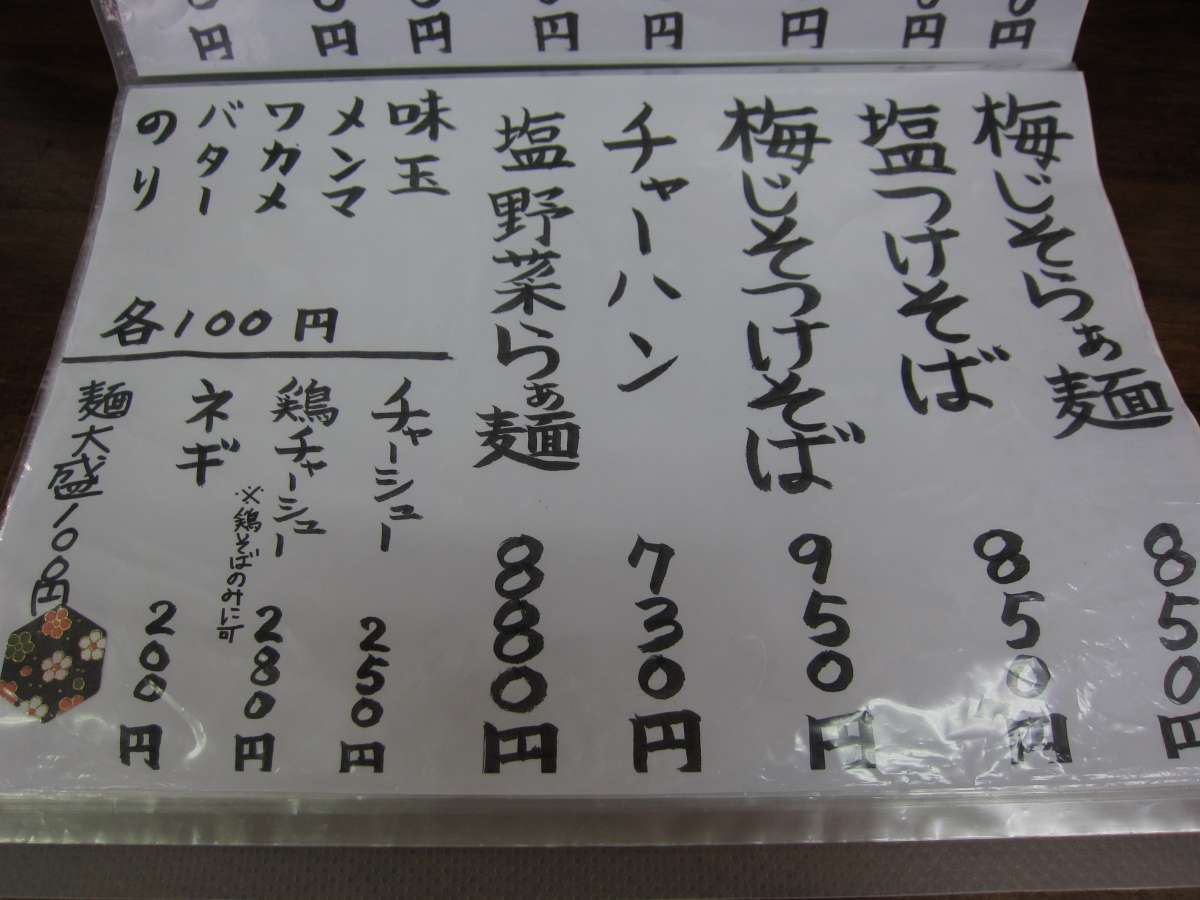 円
円
円
円
円
円
円
円
梅じそらぁ麺 850円
塩つけそば 850円
梅じそつけそば 950円
チャーハン 730円
塩野菜らぁ麺 880円
味玉
メンマ
ワカメ
バター
のり
各100円
チャーシュー 250円
鶏チャーシュー 280円
※鶏そばのみに可
ネギ 200円
麺大盛100円